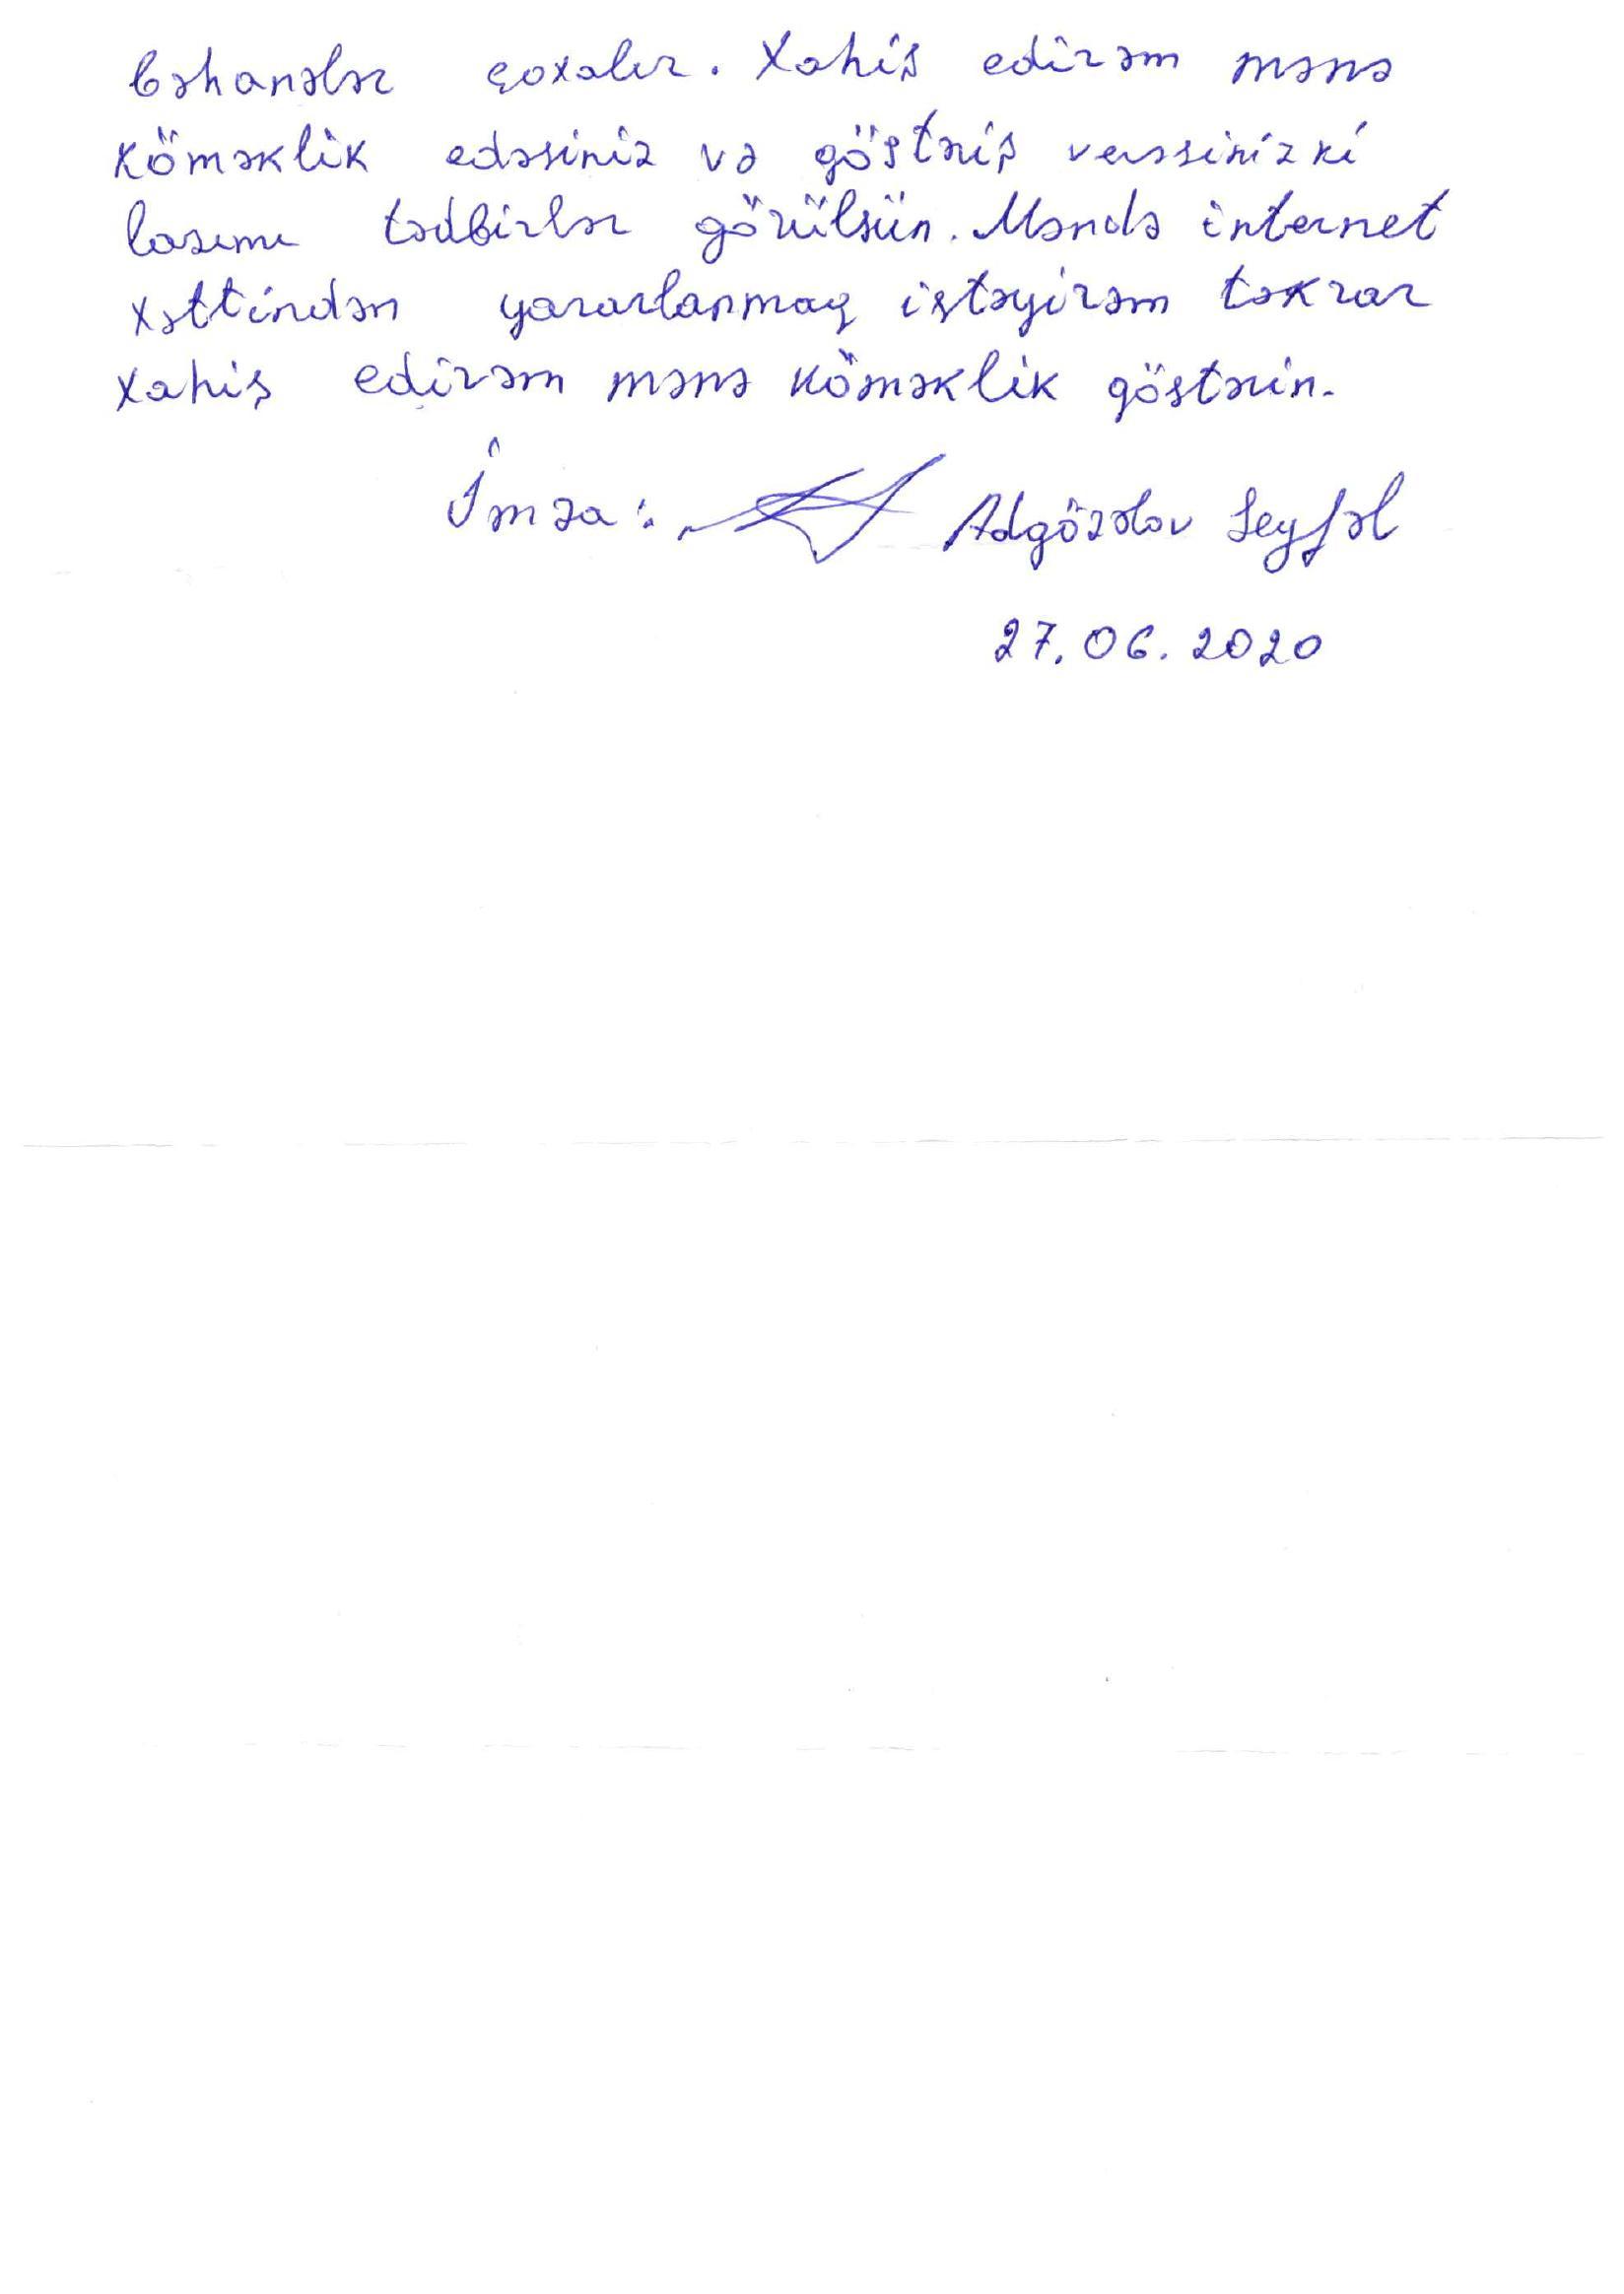 bəhanələr çoxalır. Xahiş edirəm mənə
köməklik edəsiniz və göstəriş verəsinizki
lazımı tədbirlər görülsün. Məndə internet
xəttindən yararlanmaq istəyirəm təkrar
xahiş edirəm mənə köməklik göstərin.
İmza: Adgözəlov Seyfəl
27.06.2020